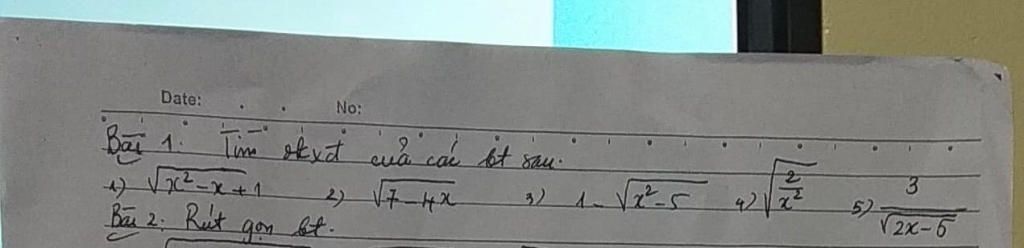 Date: No:
Bài 1: Tìm đkxđ của các bt sau:
1) √(x²-x+1) 2) √(7-4x) 3) 1-√(x²-5) 4) √(2/x²) 5) 3/√(2x-5)
Bài 2: Rút gọn bt.